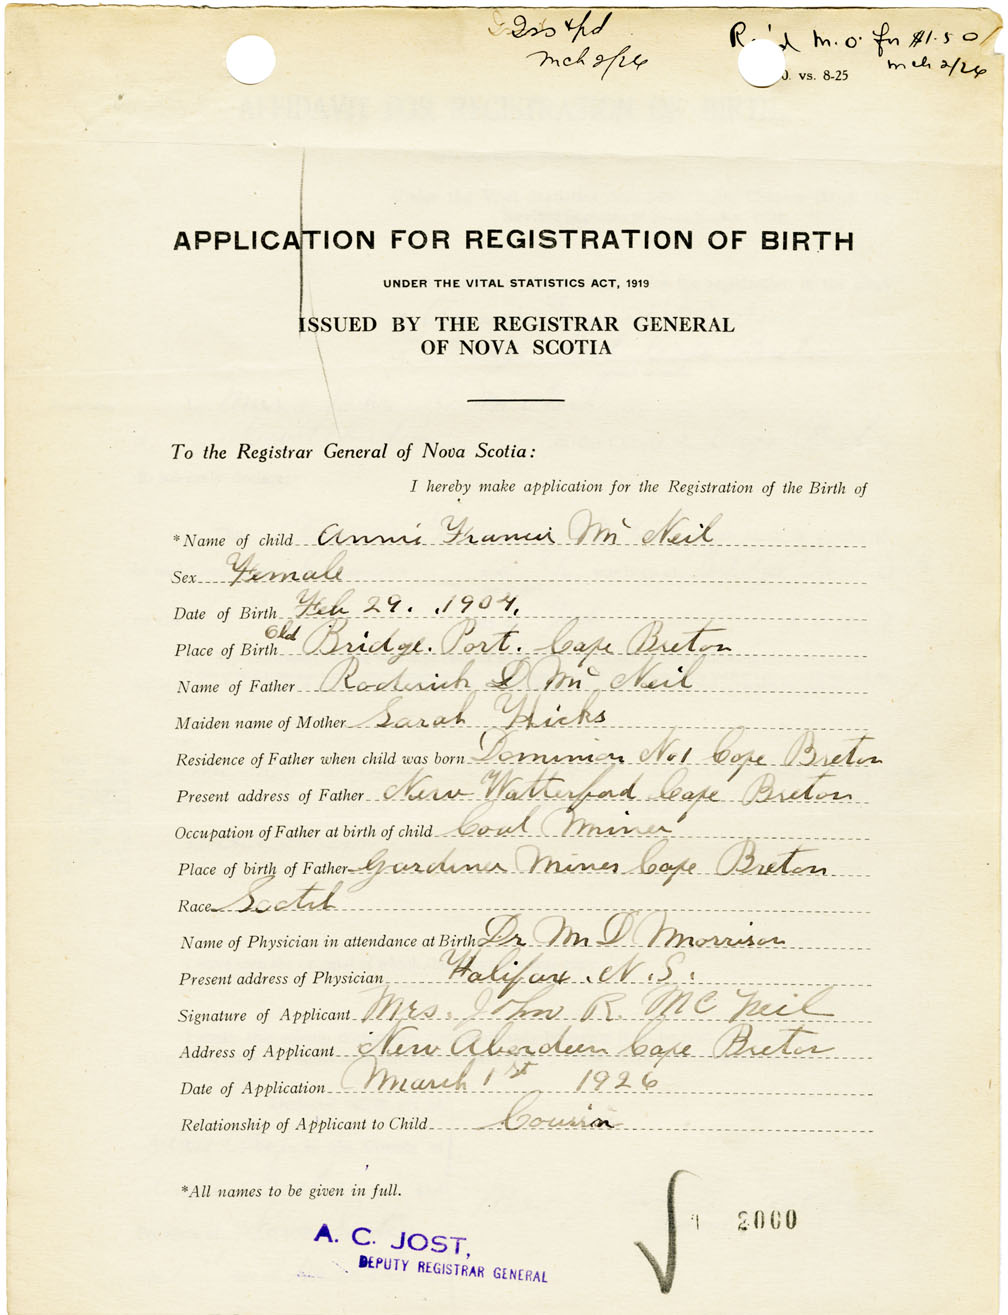 Iss & pd
Rc'd M.O. for $1.50
Mch 2/26
Mch 2/26
0. vs. 8-25
APPLICATION FOR REGISTRATION OF BIRTH
UNDER THE VITAL STATISTICS ACT, 1919
ISSUED BY THE REGISTRAR GENERAL
OF NOVA SCOTIA
To the Registrar General of Nova Scotia:
I hereby make application for the Registration of the Birth of
*Name of child Annie Francis Mc Neil
Sex Female
Date of Birth Feb 29. 1904.
Place of Birth Old Bridge. Port. Cape Breton
Name of Father Roderick D Mc Neil
Maiden name of Mother Sarah Hicks
Residence of Father when child was born Dominion No 1 Cape Breton
Present address of Father New Watterford Cape Breton
Occupation of Father at birth of child Coal Miner
Place of birth of Father Gardiner Mines Cape Breton
Race Scotch
Name of Physician in attendance at Birth Dr M D Morrison
Present address of Physician Halifax. N.S.
Signature of Applicant Mrs. John R. Mc Neil
Address of Applicant New Aberdeen Cape Breton
Date of Application March 1st 1926
Relationship of Applicant to Child Cousin
*All names to be given in full.
A. C. JOST,
DEPUTY REGISTRAR GENERAL
2000